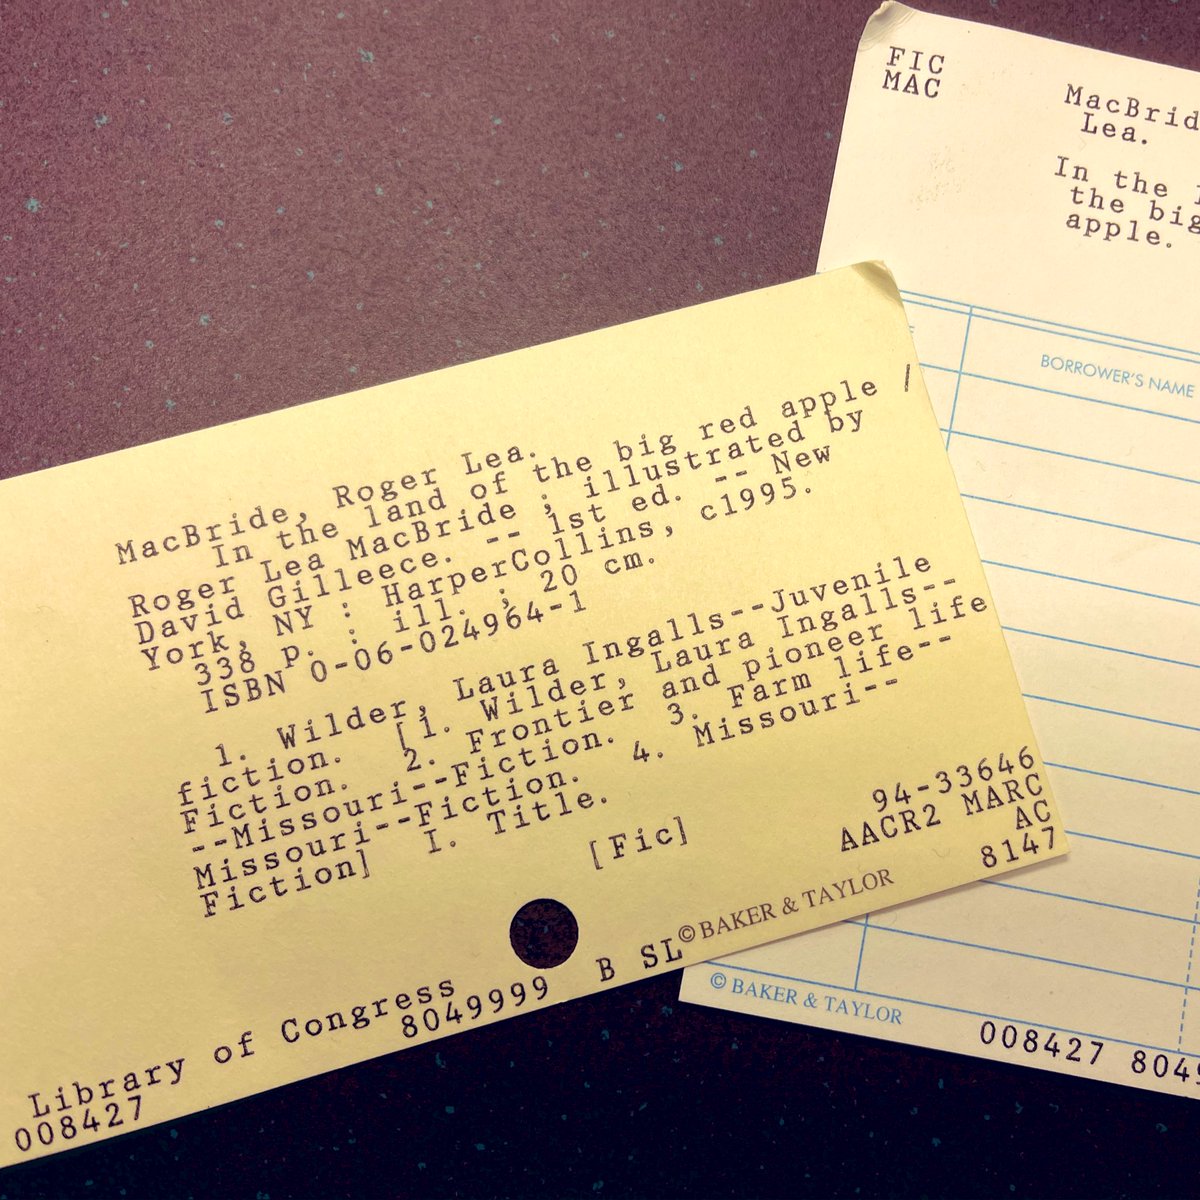 MacBride, Roger Lea.
In the land of the big red apple /
Roger Lea MacBride ; illustrated by
David Gilleece. -- 1st ed. -- New
York, NY : HarperCollins, c1995.
338 p. : ill. ; 20 cm.
ISBN 0-06-024964-1
1. Wilder, Laura Ingalls--Juvenile
fiction. [1. Wilder, Laura Ingalls--
Fiction. 2. Frontier and pioneer life
--Missouri--Fiction. 3. Farm life--
Missouri--Fiction. 4. Missouri--
Fiction] I. Title.
[Fic]
94-33646
AACR2 MARC
AC
8147
© BAKER & TAYLOR
Library of Congress
008427 8049999 B SL
FIC
MAC
MacBrid
Lea.
In the
the big
apple.
BORROWER'S NAME
© BAKER & TAYLOR
008427 804